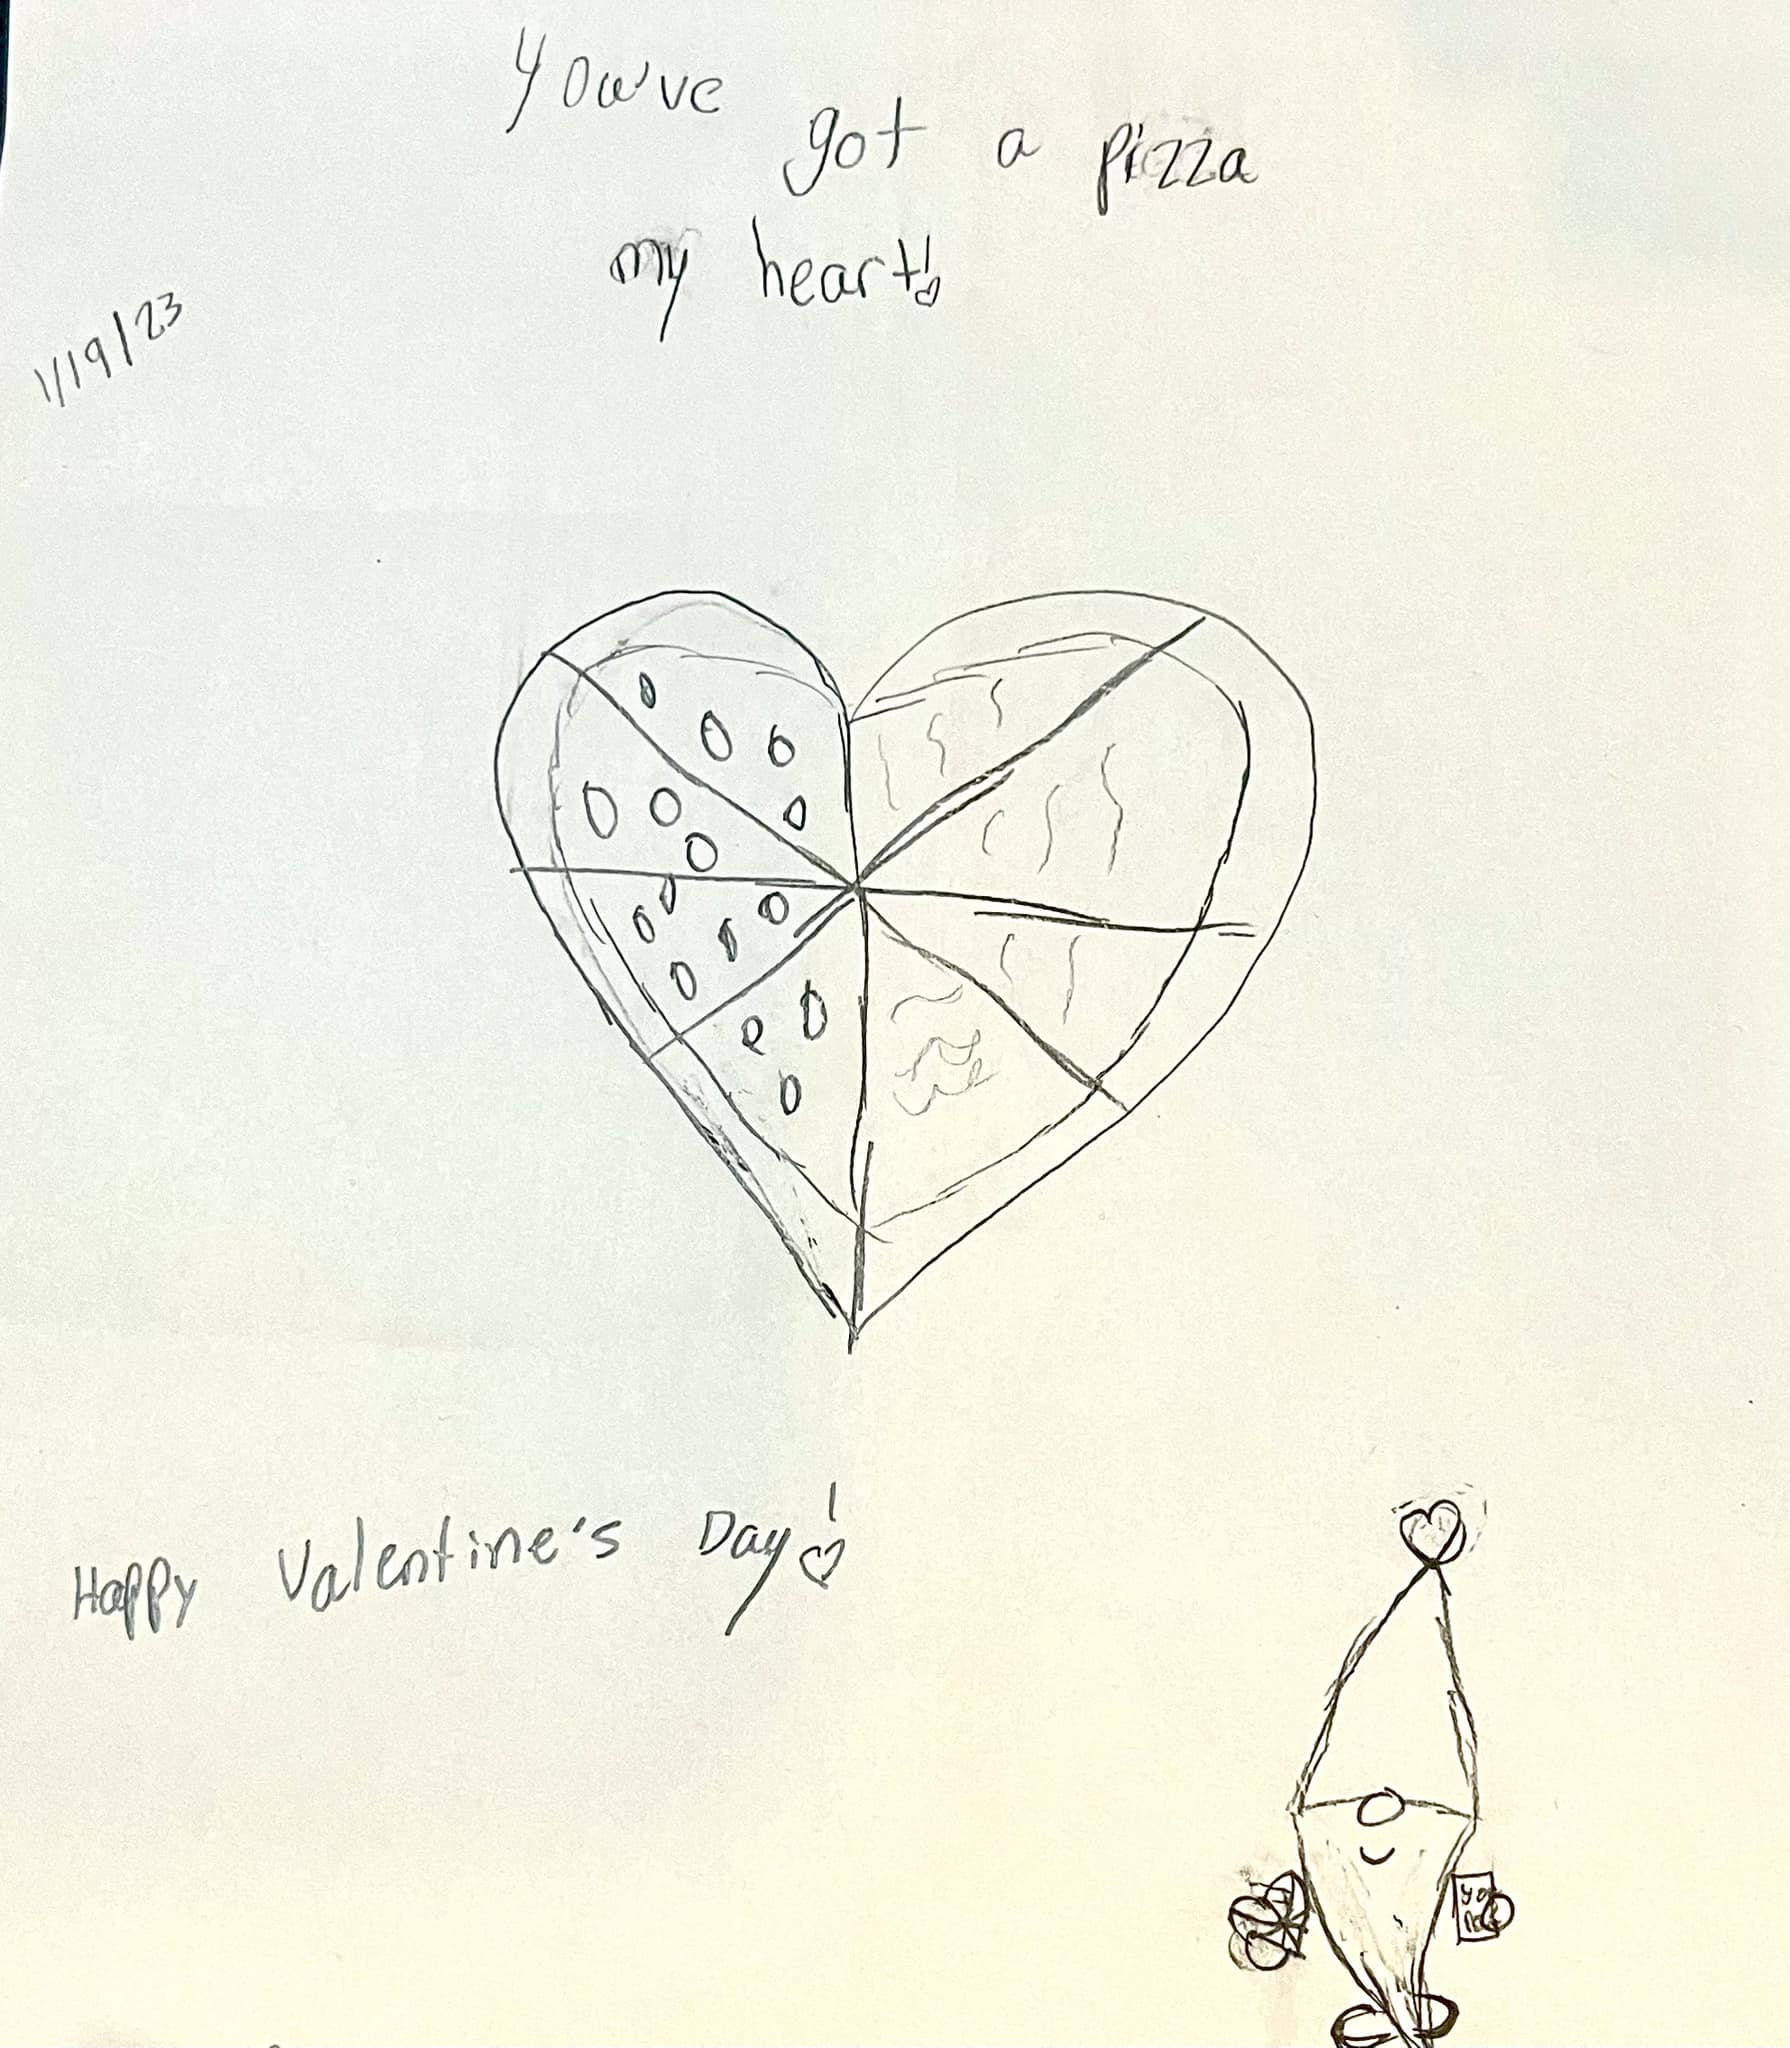 You've
got a pizza
my heart!
1/19/23
Happy Valentine's Day!